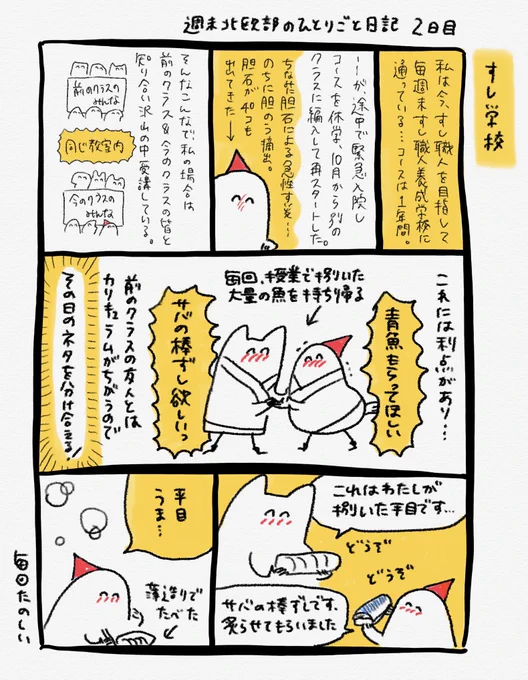 週末北欧部のひとりごと日記 2日目
すし学校
私は今、すし職人を目指して
毎週末すし職人養成学校に
通っている…コースは1年間。
…が、途中で緊急入院し
コースを休学、10月から別の
クラスに編入して再スタートした。
ちなみに胆石による急性すい炎…
のちに胆のう摘出。
胆石が40コも
出てきた→
そんなこんなで、私の場合は
前のクラス&今のクラスの皆と
知り合い沢山の中受講している。
前のクラスの
みんな
同じ教室内
今のクラスの
みんな
これには利点があり…
毎回、授業で捌いた
大量の魚を持ち帰る
青魚もらってほしい
サバの棒ずし欲しいっ
前のクラスの友人とは
カリキュラムがちがうので
その日のネタを分け合える!
これはわたしが
捌いた平目です…
どうぞ
どうぞ
サバの棒ずしです、
炙らせてもらいました
平目
うま…
薄造りで
たべた
毎回たのしい